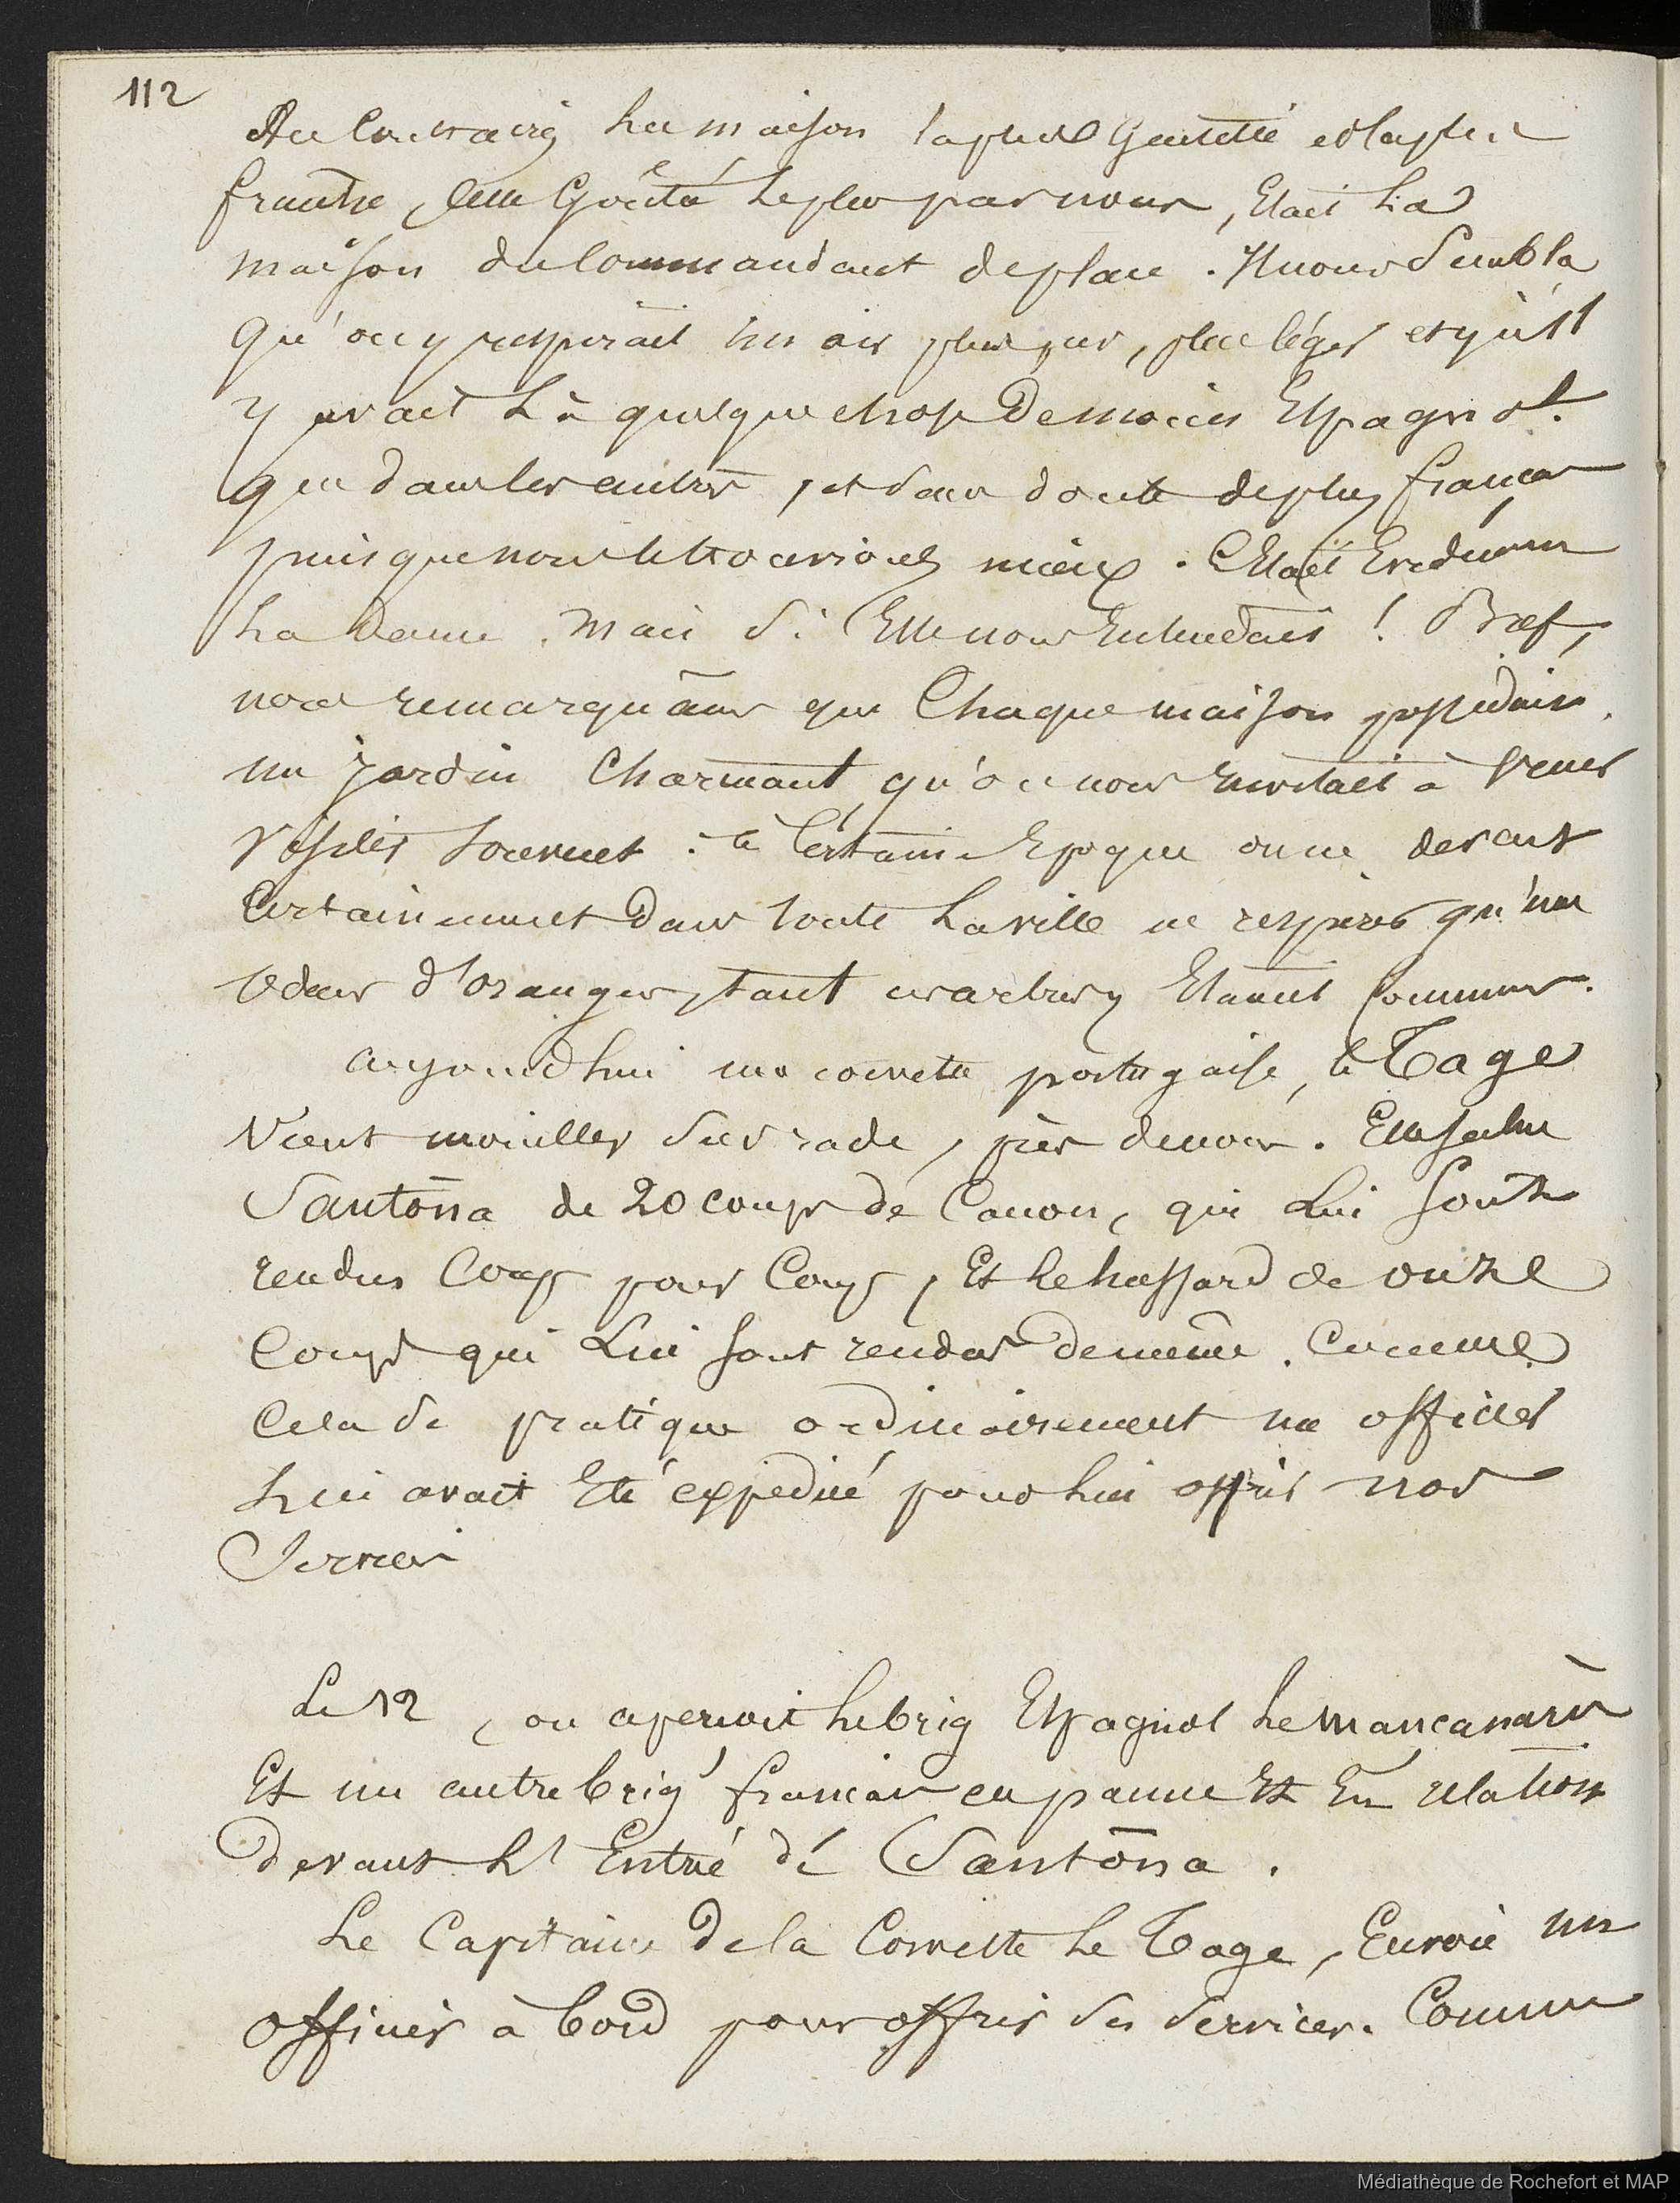 112
Au Contraire La maison la plus Gentille et la plus
franche, celle Goûtée le plus par nous, Etait La
maison du Commandant de place. Il nous Sembla
qu'on y respirait un air plus pur, plus léger et qu'il
y avait Là quelque chose De moins Espagnol
que dans les autres, et sans doute de plus français
puisque nous le trouvions mieux. C'Etait
La Dame. Mais Si Elle nous Entendait ! Bref,
nous remarquâmes que Chaque maison possédait
un jardin Charmant qu'on nous invitait à Venir
Visiter souvent : à Certaine Epoque on ne devait
Certainement Dans toute La ville ne respirer qu'une
Odeur d'Oranger, tant ces arbres y Etaient Communs.
aujourd'hui une corvette portugaise, le Tage
Vient mouiller Sur rade, près de nous. Elle salue
Santôna de 20 coups de Canon, qui Lui sont
rendus Coup pour Coup, Et Le hussard de onze
Coups qui Lui sont rendus de même. Comme
Cela Se pratique ordinairement un officier
Lui avait Eté expédié pour Lui offrir nos
Services
Le 12, on aperçoit Le brig Espagnol Le mancanarès
Et un autre brig français en panne Et En relation
Devant L'Entrée de Santôna.
Le Capitaine De la Corvette Le Tage, Envoie un
officier à bord pour offrir Ses Services. Comme
Médiathèque de Rochefort et MAP